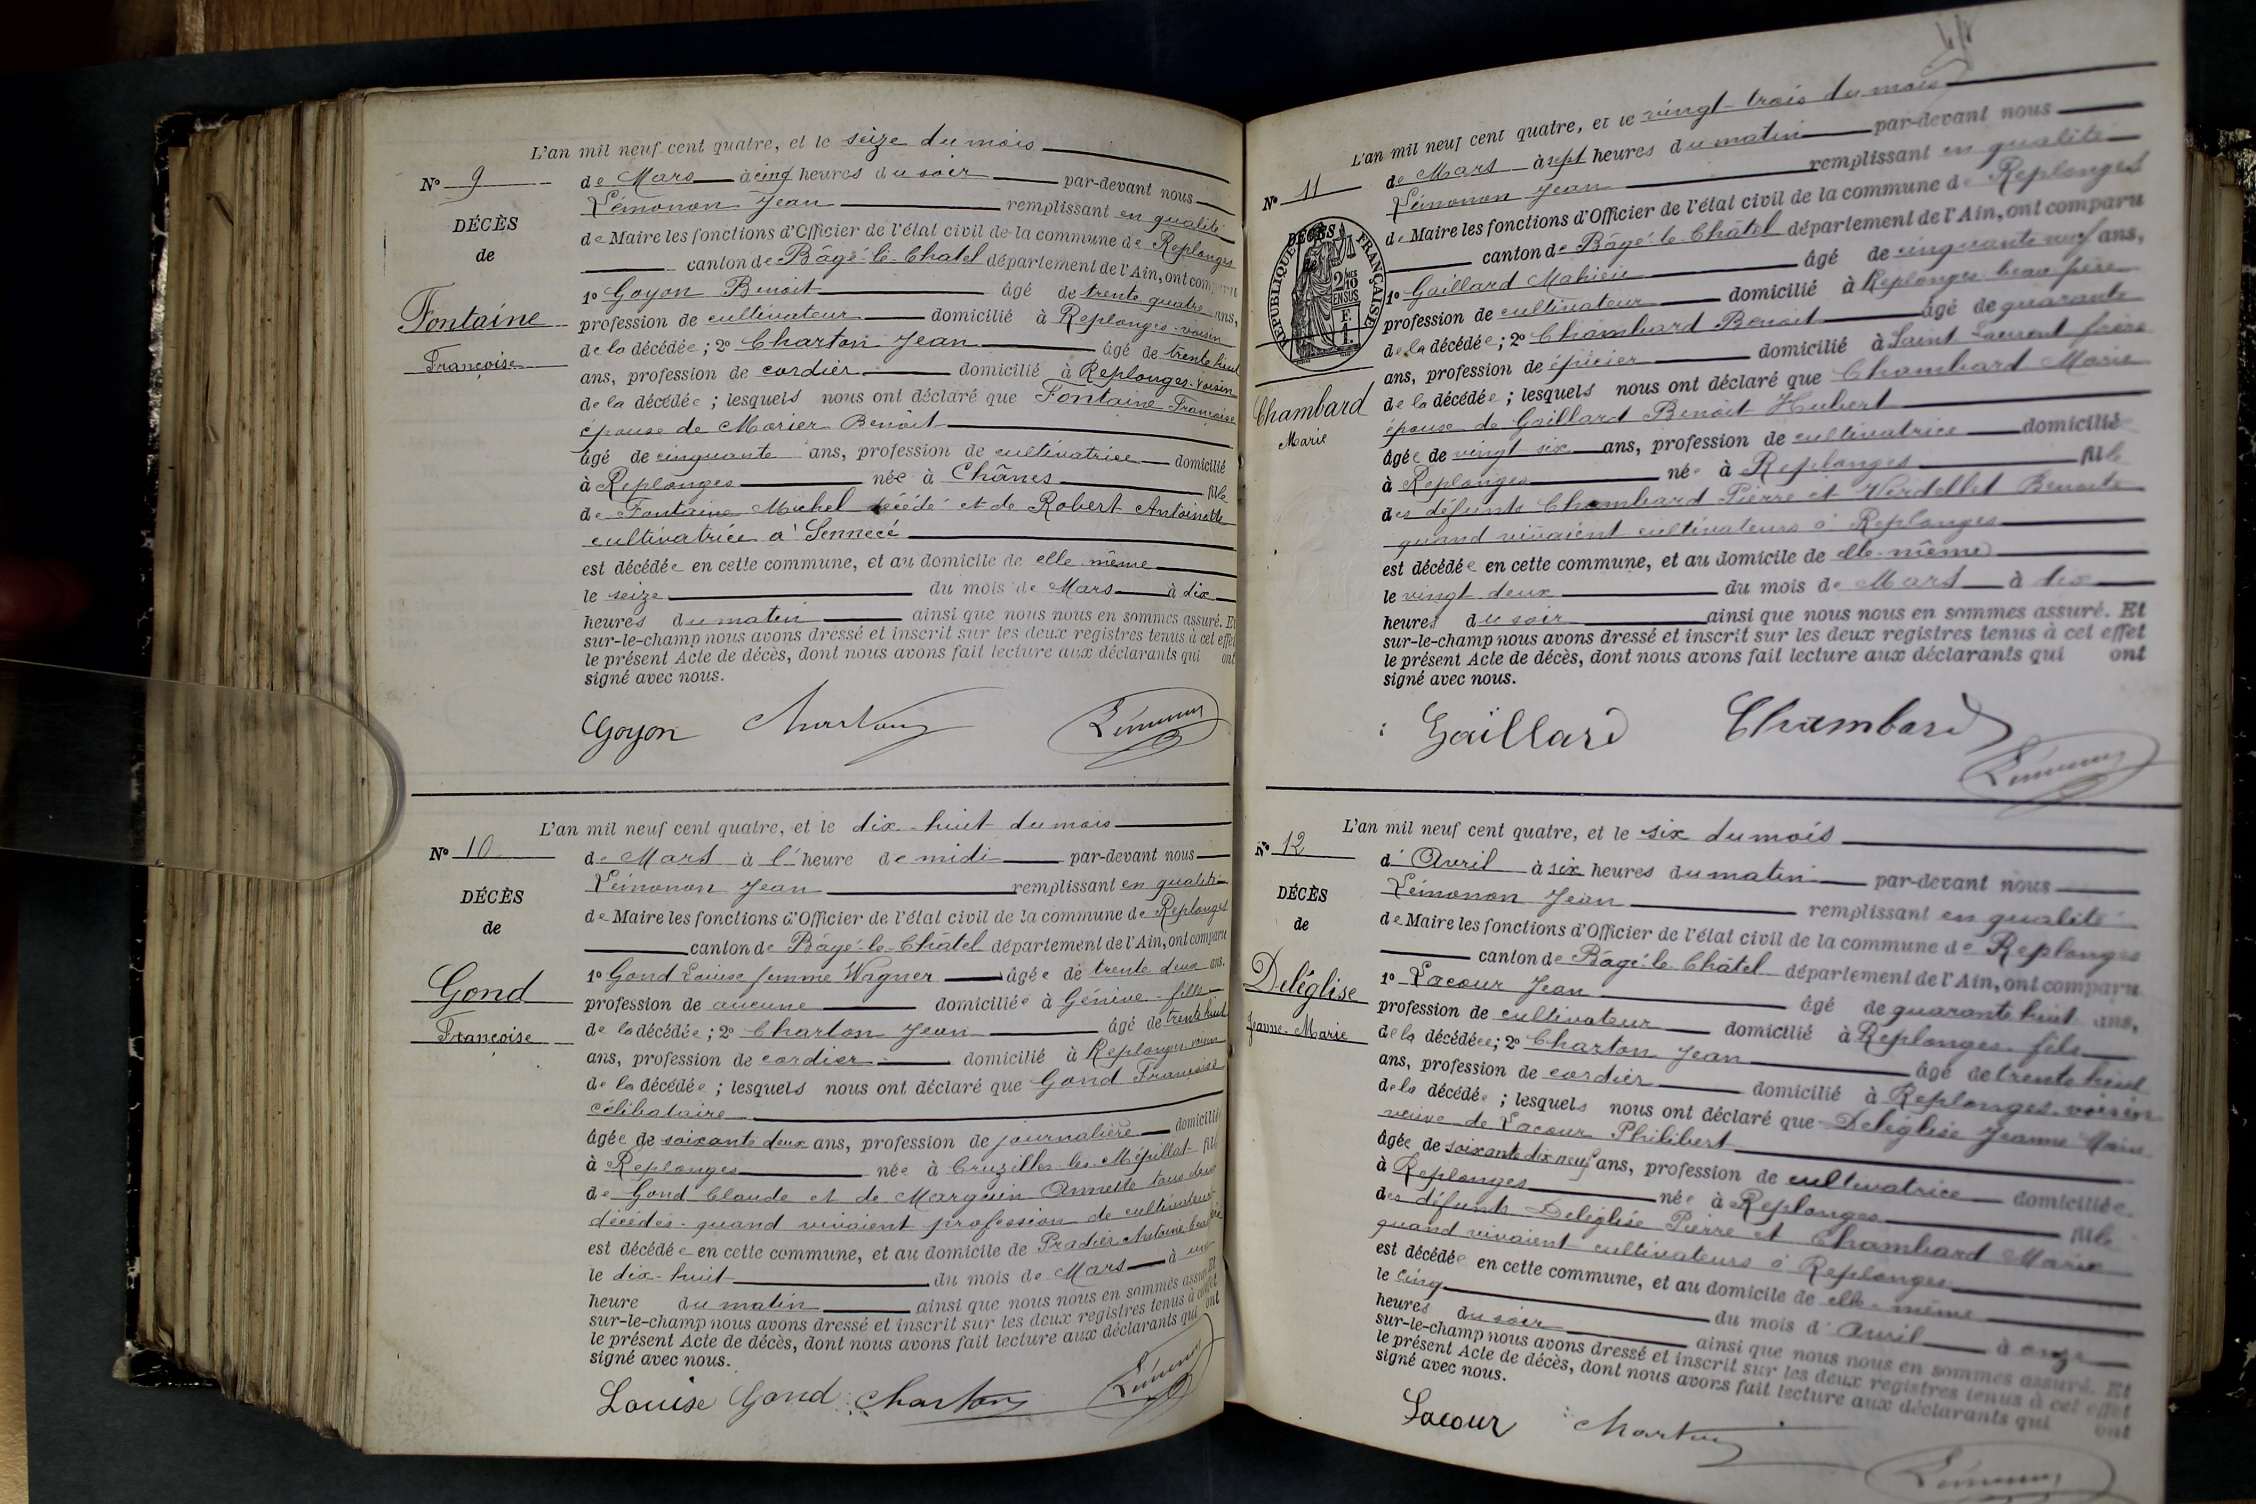 L'an mil neuf cent quatre, et le seize du mois
N° 9
de Mars à cinq heures du soir par-devant nous
Lémonon Jean remplissant en qualité
DÉCÈS
de Maire les fonctions d'Officier de l'état civil de la commune de Replonges
de
canton de Bâgé-le-Chatel département de l'Ain, ont comparu
1° Goyon Benoit âgé de trente quatre ans,
Fontaine
profession de cultivateur domicilié à Replonges - voisin
de la décédée ; 2° Charton Jean âgé de trente huit
Françoise
ans, profession de cordier domicilié à Replonges - voisin
de la décédée ; lesquels nous ont déclaré que Fontaine Françoise
épouse de Morier Benoit
âgé de cinquante ans, profession de cultivatrice domicilié
à Replonges née à Chânes fille
de Fontaine Michel décédé et de Robert Antoinette
cultivatrice à Sennecé
est décédée en cette commune, et au domicile de elle même
le seize du mois de Mars à dix
heures du matin ainsi que nous nous en sommes assuré. Et
sur-le-champ nous avons dressé et inscrit sur les deux registres tenus à cet effet
le présent Acte de décès, dont nous avons fait lecture aux déclarants qui ont
signé avec nous.
Goyon Charton Lémonon
L'an mil neuf cent quatre, et le dix-huit du mois
N° 10
de Mars à l'heure de midi par-devant nous
Lémonon Jean remplissant en qualité
DÉCÈS
de Maire les fonctions d'Officier de l'état civil de la commune de Replonges
de
canton de Bâgé-le-Châtel département de l'Ain, ont comparu
1° Gond Louise femme Wagner âgée de trente deux ans.
Gond
profession de aucune domiciliée à Génève - fille
de la décédée ; 2° Charton Jean âgé de trente huit
Françoise
ans, profession de cordier domicilié à Replonges voisin
de la décédée ; lesquels nous ont déclaré que Gond Françoise
célibataire
âgée de soixante deux ans, profession de journalière domicilié
à Replonges née à Cruzilles les Mépillat fille
de Gond Claude et de Marguin Annette tous deux
décédés - quand vivaient profession de cultivateurs
est décédée en cette commune, et au domicile de Pradier Antoine
le dix-huit du mois de Mars à un
heure du matin ainsi que nous nous en sommes assuré. Et
sur-le-champ nous avons dressé et inscrit sur les deux registres tenus à cet effet
le présent Acte de décès, dont nous avons fait lecture aux déclarants qui ont
signé avec nous.
Louise Gond Charton Lémonon
L'an mil neuf cent quatre, et le vingt-trois du mois
N° 11
de Mars à sept heures du matin par-devant nous
Lémonon Jean remplissant en qualité
DÉCÈS
de Maire les fonctions d'Officier de l'état civil de la commune de Replonges
de
canton de Bâgé-le-Châtel département de l'Ain, ont comparu
RÉPUBLIQUE FRANÇAISE
2/10 EN SUS
1° Gaillard Mahieu âgé de cinquante neuf ans,
profession de cultivateur domicilié à Replonges beau père
de la décédée ; 2° Chambard Benoit âgé de quarante
ans, profession de épicier domicilié à Saint Laurent frère
Chambard
de la décédée ; lesquels nous ont déclaré que Chambard Marie
Marie
épouse de Gaillard Benoit Hubert
âgée de vingt six ans, profession de cultivatrice domicilié
à Replonges née à Replonges fille
des défunts Chambard Pierre et Verdellet Benoite
quand vivaient cultivateurs à Replonges
est décédée en cette commune, et au domicile de elle-même
le vingt deux du mois de Mars à dix
heures du soir ainsi que nous nous en sommes assuré. Et
sur-le-champ nous avons dressé et inscrit sur les deux registres tenus à cet effet
le présent Acte de décès, dont nous avons fait lecture aux déclarants qui ont
signé avec nous.
Gaillard Chambard
Lémonon
L'an mil neuf cent quatre, et le six du mois
N° 12
d'Avril à six heures du matin par-devant nous
Lémonon Jean remplissant en qualité
DÉCÈS
de Maire les fonctions d'Officier de l'état civil de la commune de Replonges
de
canton de Bagé-le-Châtel département de l'Ain, ont comparu
Deléglise
1° Lacour Jean âgé de quarante huit ans,
profession de cultivateur domicilié à Replonges - fils
Jeanne-Marie
de la décédée; 2° Charton Jean âgé de trente huit
ans, profession de cordier domicilié à Replonges voisin
de la décédée ; lesquels nous ont déclaré que Deléglise Jeanne Marie
veuve de Lacour Philibert
âgée de soixante dix neuf ans, profession de cultivatrice domiciliée
à Replonges née à Replonges fille
des défunts Deléglise Pierre et Chambard Marie
quand vivaient cultivateurs à Replonges
est décédée en cette commune, et au domicile de elle-même
le cinq du mois d'Avril à onze
heures du soir ainsi que nous nous en sommes assuré. Et
sur-le-champ nous avons dressé et inscrit sur les deux registres tenus à cet effet
le présent Acte de décès, dont nous avons fait lecture aux déclarants qui ont
signé avec nous.
Lacour Charton
Lémonon